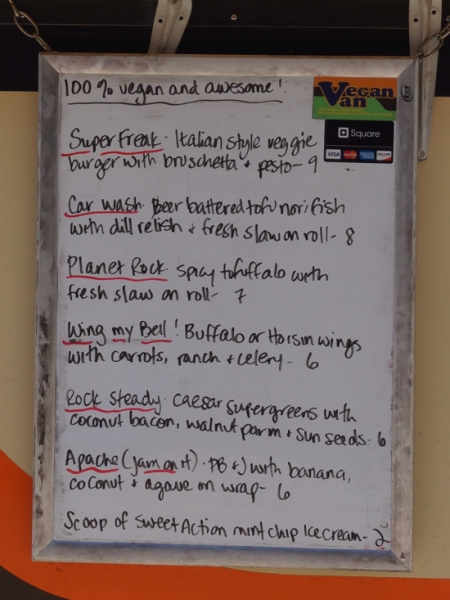 100% vegan and awesome!
Vegan
Van
Square
VISA
Super Freak - Italian style veggie
burger with bruschetta + pesto - 9
Car wash - Beer battered tofu nori fish
with dill relish + fresh slaw on roll - 8
Planet Rock - spicy tofuffalo with
fresh slaw on roll - 7
Wing my Bell! Buffalo or Hoisin wings
with carrots, ranch + celery - 6
Rock Steady - caesar supergreens with
coconut bacon, walnut parm + sun seeds - 6
Apache (jam on it) - PB + J with banana,
coconut + agave on wrap - 6
Scoop of Sweet Action mint chip Ice cream - 2